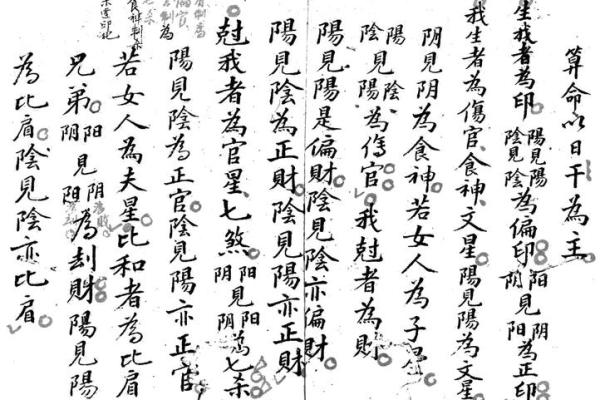 算命以日干為主
生我者為印陽見陽陰見陰為偏印阳見阴阴見阳為正印
我生者為傷官、食神、文星陽見陽為文星
阴見阴為食神若女人為子星
陽見陰陰見陽為傷官我尅者為財
陽見陽是偏財陰見陰亦偏財
陽見陰為正財陰見陽亦正財
尅我者為官星、七煞阳見阳阴見阴為七杀
陽見陰為正官陰見陽亦正官
若女人為夫星比和者為比肩
兄弟阳見阴阴見阳為刦財陽見陽
為比肩陰見陰亦比肩